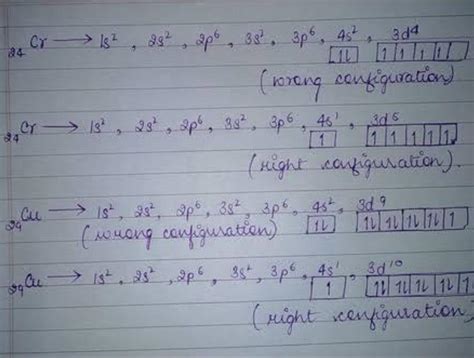 ₂₄Cr ⟶ 1s², 2s², 2p⁶, 3s², 3p⁶, 4s², 3d⁴
1l 1 1 1 1
(wrong configuration)
₂₄Cr ⟶ 1s², 2s², 2p⁶, 3s², 3p⁶, 4s¹, 3d⁵
1 1 1 1 1 1
(right configuration).
₂₉Cu ⟶ 1s², 2s², 2p⁶, 3s², 3p⁶, 4s², 3d⁹
(wrong configuration) 1l 1l 1l 1l 1l 1
₂₉Cu ⟶ 1s², 2s², 2p⁶, 3s², 3p⁶, 4s¹, 3d¹⁰
1 1l 1l 1l 1l 1l
(right configuration